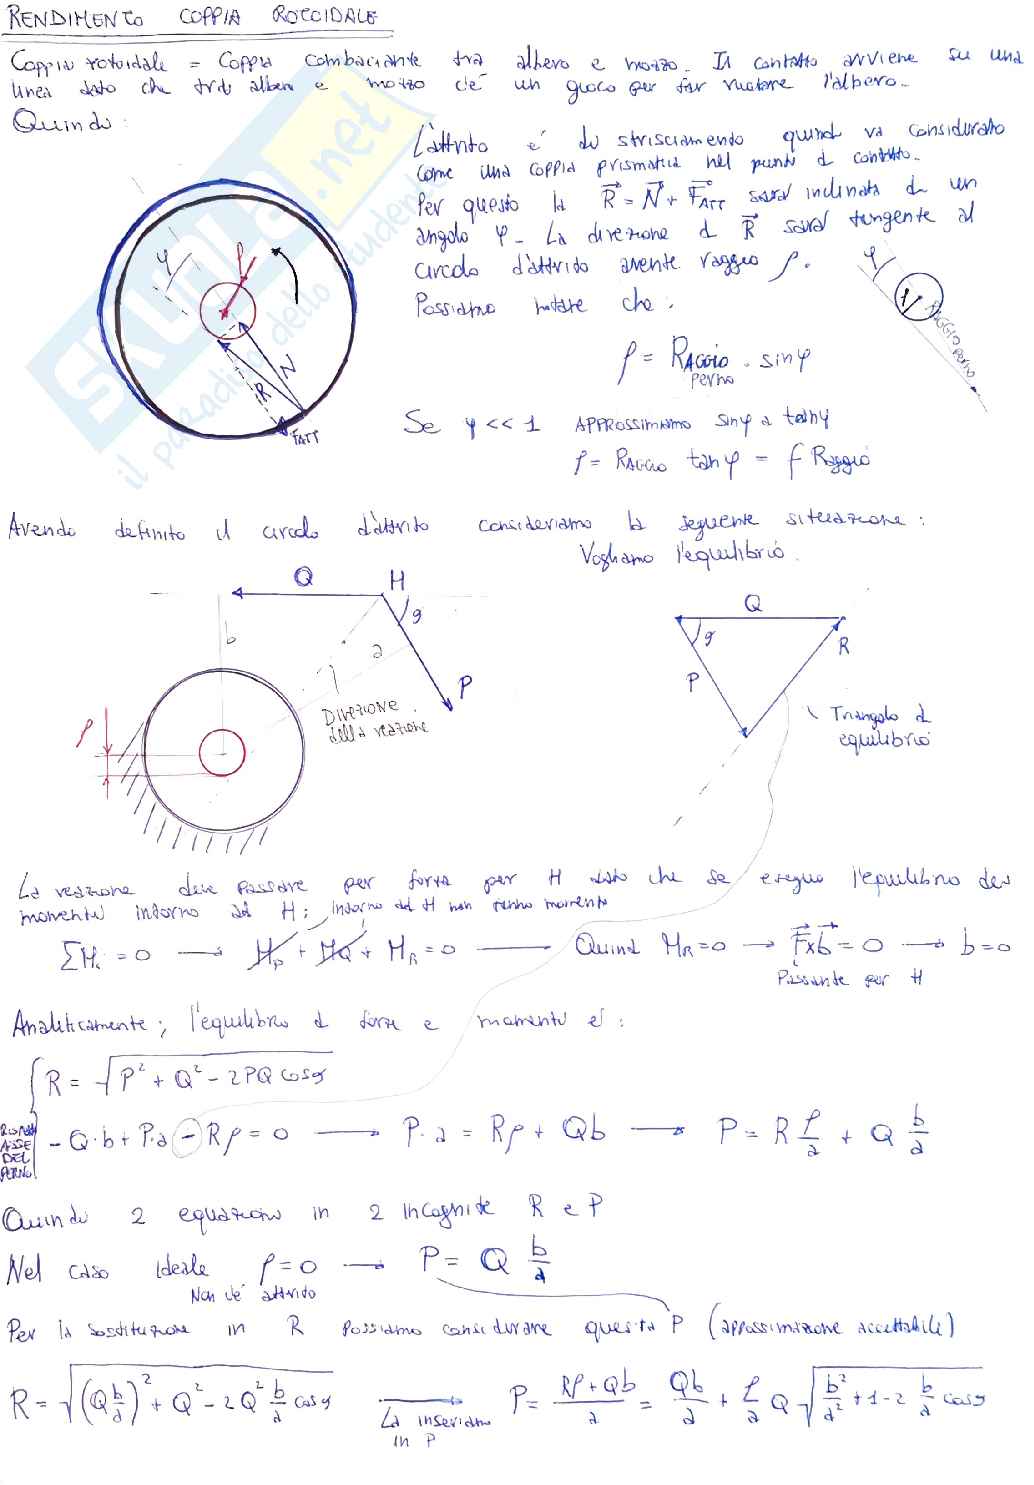 RENDIMENTO COPPIA ROTOIDALE
Coppia rotoidale = Coppia combaciante tra albero e mozzo. Il contatto avviene su una
linea dato che tra albero e mozzo c'è un gioco per far ruotare l'albero.
Quindi:
L'attrito è di strisciamento quindi va considerato
come una coppia prismatica nel punto di contatto.
Per questo la R = N + FATT sarà inclinata di un
angolo φ. La direzione di R sarà tangente al
circolo d'attrito avente raggio ρ.
Possiamo notare che:
ρ = RAGGIO PERNO · sinφ
Se φ << 1 APPROSSIMIAMO sinφ a tanφ
ρ = RAGGIO tanφ = f Raggio
φ
ρ
N
R
FATT
φ
RAGGIO PERNO
skuola.net
il paradiso dello studente
Avendo definito il circolo d'attrito consideriamo la seguente situazione:
Vogliamo l'equilibrio.
Q
H
b
a
P
ρ
DIREZIONE
della reazione
Q
R
P
Triangolo di
equilibrio
La reazione deve passare per forza per H dato che se eseguo l'equilibrio dei
momenti intorno ad H; intorno ad H non fanno momento
ΣMi = 0 → Mp + MQ + MR = 0 → Quindi MR = 0 → F x b = 0 → b = 0
Passante per H
Analiticamente, l'equilibrio di forze e momenti è:
R = √P² + Q² - 2PQ cosϑ
- Q·b + P·a - Rρ = 0 → P·a = Rρ + Qb → P = R ρ/a + Q b/a
ASSE
DEL
PERNO
Quindi 2 equazioni in 2 incognite R e P
Nel caso ideale ρ = 0 → P = Q b/a
Non c'è attrito
Per la sostituzione in R possiamo considerare questa P (approssimazione accettabile)
R = √(Q b/a)² + Q² - 2Q² b/a cosϑ → P = Rρ + Qb/a = Qb/a + ρ/a Q √b²/a² + 1 - 2 b/a cosϑ
La inseriamo
in P